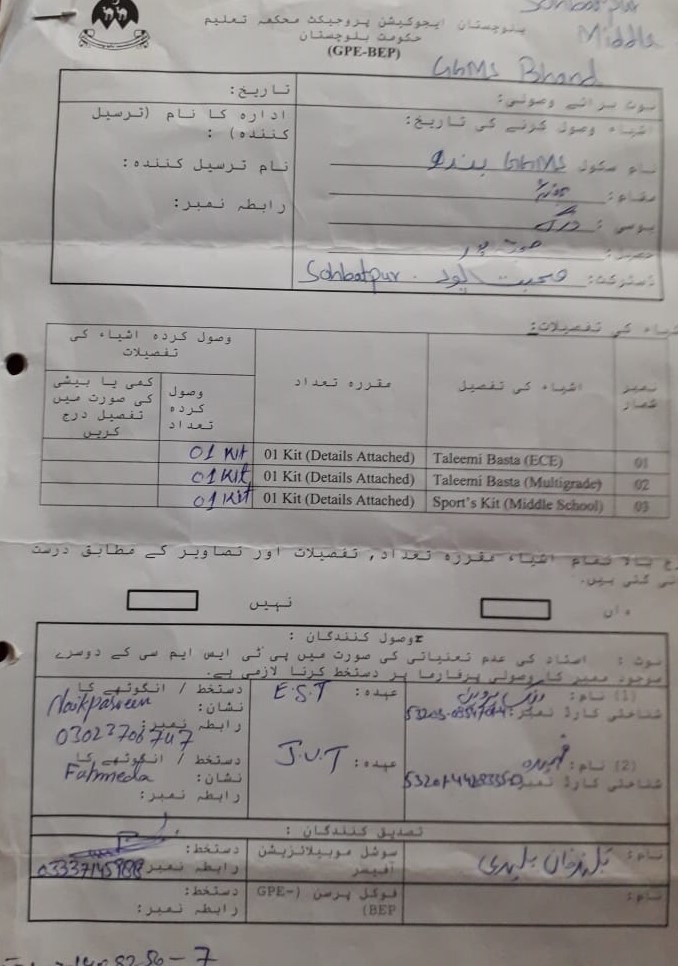 Sohbatpur
Middle
بلوچستان ایجوکیشن پروجیکٹ محکمہ تعلیم
حکومت بلوچستان
(GPE-BEP)
GGMS Bhand
تاریخ:
ادارہ کا نام (ترسیل کنندہ) :
نام ترسیل کنندہ:
رابطہ نمبر:
نوٹ برائے وصولی:
اشیاء وصول کرنے کی تاریخ:
نام سکول GGMS
مقام:
یوسی:
ڈسٹرکٹ: صحبت پور . Sohbatpur
اشیاء کی تفصیلات:
نمبر شمار
اشیاء کی تفصیل
مقررہ تعداد
وصول کردہ اشیاء کی تفصیلات
وصول کردہ تعداد
کمی یا بیشی کی صورت میں تفصیل درج کریں
01 Taleemi Basta (ECE) 01 Kit (Details Attached) 01 Kit
02 Taleemi Basta (Multigrade) 01 Kit (Details Attached) 01 Kit
03 Sport's Kit (Middle School) 01 Kit (Details Attached) 01 Kit
بالا تمام اشیاء مقررہ تعداد, تفصیلات اور تصاویر کے مطابق درست
گئی ہیں.
ہاں
نہیں
وصول کنندگان :
نوٹ : استاد کی عدم تعنیاتی کی صورت میں پی ٹی ایس ایم سی کے دوسرے
موجود ممبر کا وصولی پرفارما پر دستخط کرنا لازمی ہے.
(1) نام:
شناختی کارڈ نمبر:
عہدہ: E.S.T
دستخط / انگوٹھے کا نشان: Naikparveen
رابطہ نمبر: 03023706747
(2) نام: فہمیدہ
شناختی کارڈ نمبر:
عہدہ: J.V.T
دستخط / انگوٹھے کا نشان: Fahmeda
رابطہ نمبر:
تصدیق کنندگان :
نام:
سوشل موبیلائزیشن آفیسر
دستخط:
رابطہ نمبر:
نام:
فوکل پرسن (GPE-BEP)
دستخط:
رابطہ نمبر: